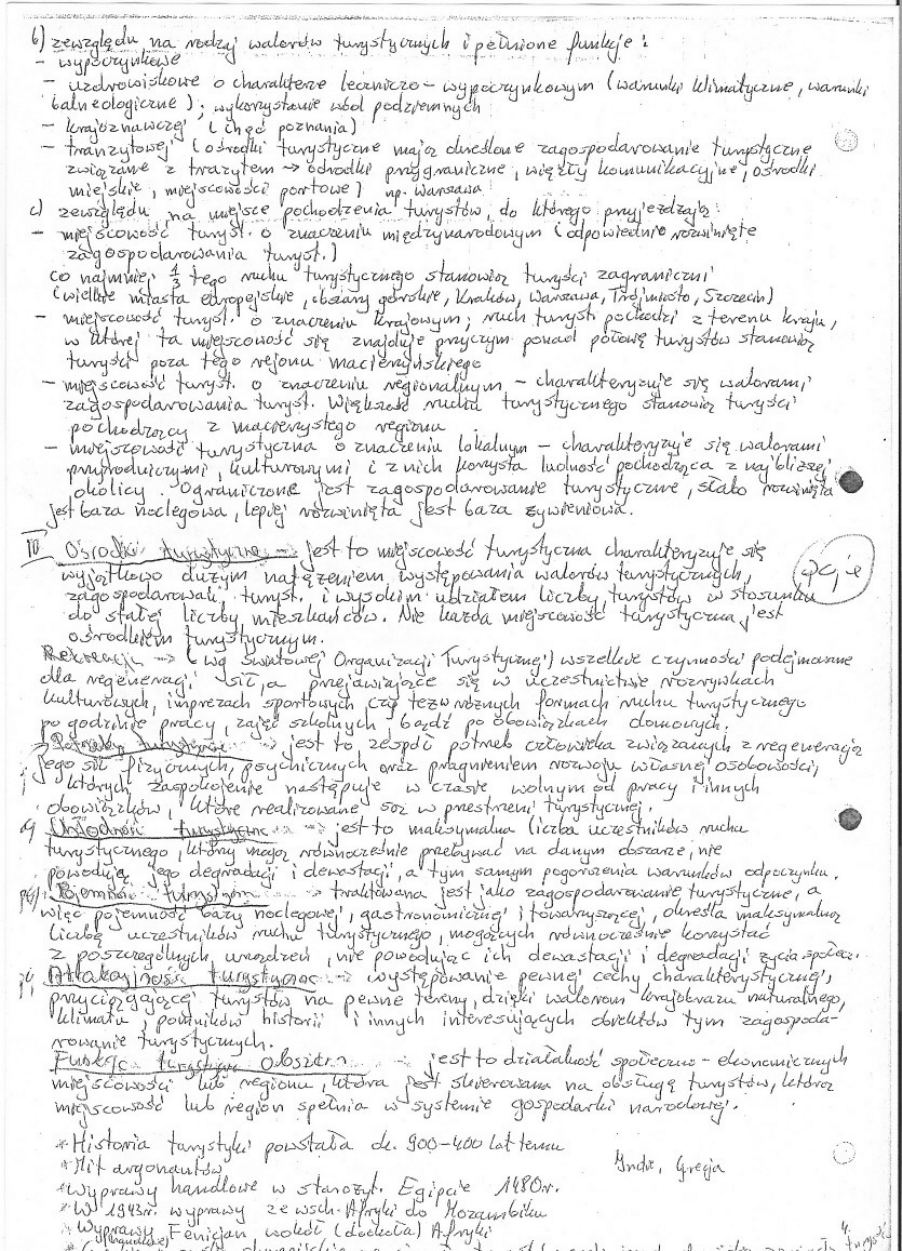 b) ze względu na rodzaj walorów turystycznych i pełnione funkcje :
- wypoczynkowe
- uzdrowiskowe o charakterze leczniczo - wypoczynkowym (warunki klimatyczne, warunki
balneologiczne) ; wykorzystanie wód podziemnych
- krajoznawczej (chęć poznania)
- tranzytowej (ośrodki turystyczne mają określone zagospodarowanie turystyczne
związane z trazytem → ośrodki przygraniczne, węzły komunikacyjne, ośrodki
miejskie, miejscowości portowe) np. Warszawa
c) ze względu na miejsce pochodzenia turystów, do którego przyjeżdzają:
- miejscowość turyst. o znaczeniu międzynarodowym (odpowiednio rozwinięte
zagospodarowania turyst.)
co najmniej 1/3 tego ruchu turystycznego stanowią turyści zagraniczni
(wielkie miasta europejskie, obszary górskie, Kraków, Warszawa, Trójmiasto, Szczecin)
- miejscowość turyst. o znaczeniu krajowym ; ruch turyst. pochodzi z terenu kraju,
w której ta miejscowość się znajduje przyczym ponad połowę turystów stanowią
turyści poza tego rejonu macierzyńskiego
- miejscowość turyst. o znaczeniu regionalnym - charakteryzuje się walorami
zagospodarowania turyst. Większość ruchu turystycznego stanowią turyści
pochodzący z macierzystego regionu
- miejscowość turystyczna o znaczeniu lokalnym - charakteryzuje się walorami
przyrodniczymi, kulturowymi i z nich korzysta ludność pochodząca z najbliższej
okolicy. Ograniczone jest zagospodarowanie turystyczne, słabo rozwinięta
jest baza noclegowa, lepiej rozwinięta jest baza żywieniowa.
Ośrodki turystyczne → jest to miejscowość turystyczna charakteryzuje się
wyjątkowo dużym natężeniem występowania walorów turystycznych,
zagospodarowań turyst. i wysokim udziałem liczby turystów w stosunku
do stałej liczby mieszkańców. Nie każda miejscowość turystyczna jest
ośrodkiem turystycznym.
Rekreacja → (wg Światowej Organizacji Turystycznej) wszelkie czynności podejmowane
dla regeneracji sił, a przejawiające się w uczestnictwie rozrywkach
kulturowych, imprezach sportowych czy też w różnych formach ruchu turystycznego
po godzinie pracy, zajęć szkolnych bądź po obowiązkach domowych.
Potrzeby turystyczne → jest to zespół potrzeb człowieka związanych z regeneracją
jego sił fizycznych, psychicznych oraz pragnieniem rozwoju własnej osobowości,
których zaspokojenie następuje w czasie wolnym od pracy i innych
obowiązków, które realizowane są w przestrzeni turystycznej.
turystyczne → jest to maksymalna liczba uczestników ruchu
turystycznego, który mają równocześnie przebywać na danym obszarze, nie
powodują jego degradacji i dewastacji, a tym samym pogorszenia warunków odpoczynku.
Pojemność → traktowana jest jako zagospodarowanie turystyczne, a
więc pojemność bazy noclegowej, gastronomicznej i towarzyszącej, określa maksymalną
liczbę uczestników ruchu turystycznego, mogących równocześnie korzystać
z poszczególnych urządzeń, nie powodując ich dewastacji i degradacji życia społecz.
Atrakcyjność turystyczna → występowanie pewnej cechy charakterystycznej,
przyciągającej turystów na pewne tereny, dzięki walorom krajobrazu naturalnego,
klimatu, pomników historii i innych interesujących obiektów tym zagospoda-
rowanie turystycznych.
Funkcje turystyczne obszaru → jest to działalność społeczno - ekonomicznych
miejscowości lub regionu, która jest skierowana na obsługę turystów, którą
miejscowość lub region spełnia w systemie gospodarki narodowej.
* Historia turystyki powstała ok. 900-400 lat temu
* Mit argonautów
Indie, Grecja
* Wyprawy handlowe w starożyt. Egipcie 1480r.
* W 1943r. wyprawy ze wsch. Afryki do Mozambiku
* Wyprawy Fenicjan wokół (dookoła) Afryki